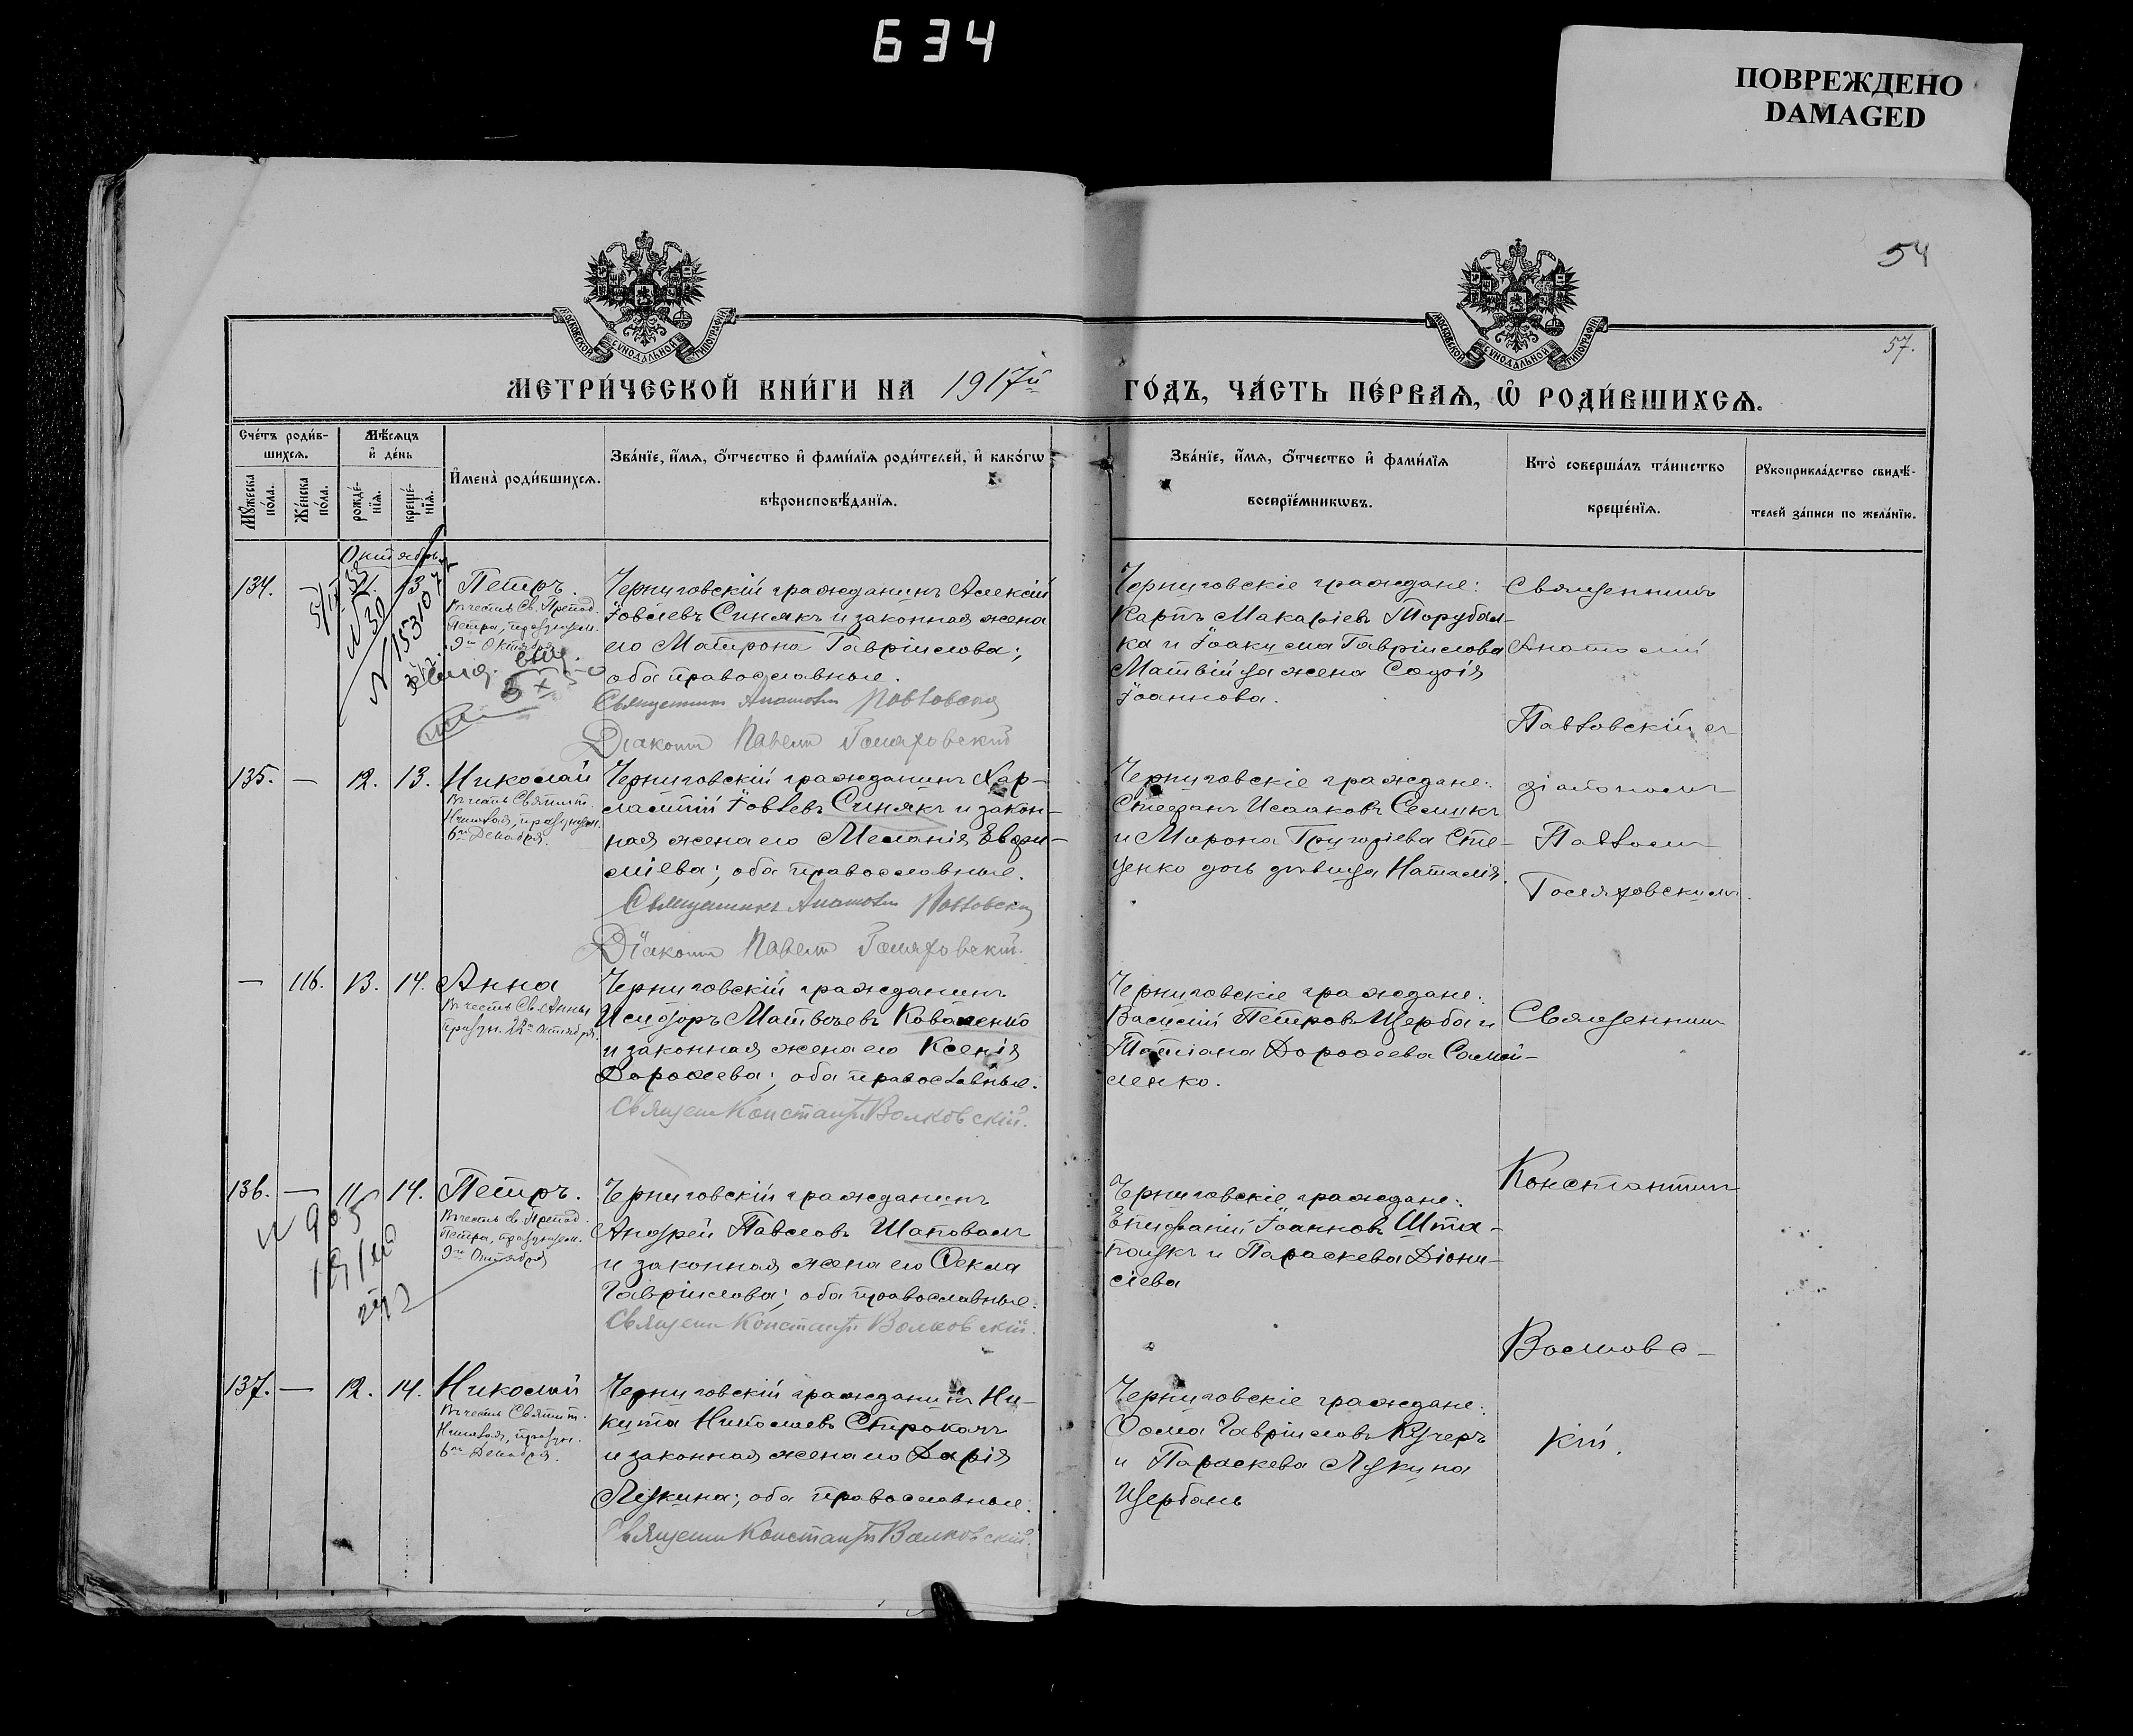 634
ПОВРЕЖДЕНО
DAMAGED
54
57.
МОСКОВСКОЙ СѴНОДАЛЬНОЙ ТИПОГРАФІИ
МОСКОВСКОЙ СѴНОДАЛЬНОЙ ТИПОГРАФІИ
МЕТРИ́ЧЕСКОЙ КНИ́ГИ НА 1917й
ГО́ДЪ, ЧА́СТЬ ПЕ́РВАѦ, Ѡ҆ РОДИ́ВШИХСѦ.
Сче́тъ роди́в-
шихсѧ.
Мꙋжеска по́ла.
Же́нска по́ла.
Мѣ́сѧцъ
и҆ де́нь
рожде́-
нїѧ.
креще́-
нїѧ.
И҆мена̀ роди́вшихсѧ.
Зва́нїе, и҆́мѧ, ѻ҆́тчество и҆ фами́лїѧ роди́телей, и҆ како́гѡ
вѣроисповѣ́данїѧ.
Зва́нїе, и҆́мѧ, ѻ҆́тчество и҆ фами́лїѧ
воспрїе́мникѡвъ.
Кто̀ соверша́лъ та́инство
креще́нїѧ.
Рꙋкоприкла́дство свидѣ́-
телей за́писи по жела́нїю.
Октябрь
134.
13
Петръ.
Въ честь Св. Препод.
Петра, празднуем.
9го Октября
Черниговскій гражданинъ Алексій
Іовлевъ Синякъ и законная жена
его Матрона Гавріилова;
оба православные.
Священникъ Анатолій Павловскій
Діаконъ Павелъ Голяховскій
Черниговскіе граждане:
Карпъ Макаріевъ
и Іоакима Гавріилова
жена Софія
Іоаннова.
Священникъ
Анатолій
Павловскій съ
135. — 12. 13. Николай
Въ честь Святит.
Николая, празднуем.
6го Декабря.
Черниговскій гражданинъ Хар-
лампій Іовлевъ Синякъ и закон-
ная жена его Меланія Евфи-
міева; оба православные.
Священникъ Анатолій Павловскій
Діаконъ Павелъ Голяховскій.
Черниговскіе граждане:
Стефанъ Исааковъ Селикъ
и Мирона Григоріева Сте-
ценко дочь дѣвица Наталія.
діакономъ
Павломъ
Голяховскимъ.
— 116. 13. 14. Анна
Въ честь Св. Анны
Черниговскій гражданинъ
Исидоръ Матвѣевъ Коваленко
и законная жена его Ксенія
Дороѳеева; оба православные.
Священ Константин Волковскій.
Черниговскіе граждане:
Василій Петровъ Щерба и
Татіана Дороѳеева Самой-
ленко.
Священникъ
136. — 11. 14. Петръ.
Въ честь Св. Препод.
Петра, празднуем.
9го Октября
Черниговскій гражданинъ
Андрей Павловъ Шаповалъ
и законная жена его Ѳекла
Гавріилова; оба православные.
Священ Константин Волковскій.
Черниговскіе граждане:
Епифаній Іоанновъ
и Параскева Діони-
сіева
Константинъ
Волковс-
137. — 12. 14. Николай
Въ честь Святит.
Николая, праздн.
6го Декабря.
Черниговскій гражданинъ Ни-
кита Николаевъ Строкачъ
и законная жена его Дарія
Лукина; оба православные.
Священ Константин Волковскій.
Черниговскіе граждане:
Ѳома Гавріиловъ Кучеръ
и Параскева Лукина
Щербань
кій.